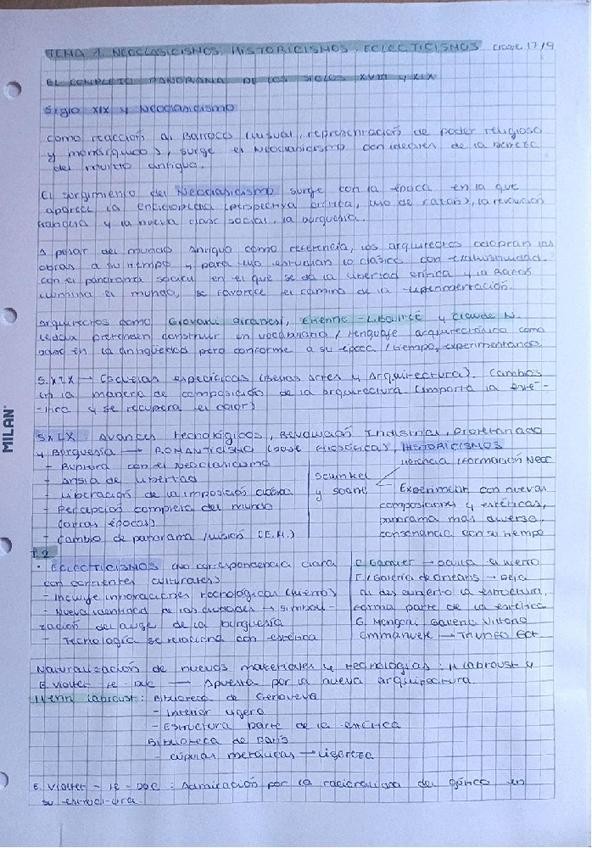 TEMA 1. NEOCLASICISMOS, HISTORICISMOS, ECLECTICISMOS clase 17/9
EL COMPLETO PANORAMA DE LOS SIGLOS XVIII y XIX
Siglo XIX y Neoclasicismo
Como reacción al Barroco (visual, representación de poder religioso
y monárquico), surge el Neoclasicismo con ideales de la
del mundo antiguo.
El surgimiento del Neoclasicismo surge con la época en la que
aparece la enciclopedia (perspectiva crítica, uso de razón), la revolución
francesa y la nueva clase social, la burguesía.
A pesar del mundo antiguo como referencia, los arquitectos adaptan las
obras a su tiempo y para ello estudian lo clásico con exhaustividad.
Con el panorama social en el que se da la libertad crítica y la Razón
ilumina el mundo, se favorece el camino de la experimentación.
Arquitectos como Giovani Piranesi, Etienne-Louis y Claude N.
Ledoux pretenden construir un vocabulario/lenguaje arquitectónico como
en la antigüedad pero conforme a su época/tiempo, experimentando.
S.XIX → Escuelas específicas (Bellas Artes y Arquitectura). Cambios
en la manera de composición de la arquitectura (importa la esté-
tica y se recupera el color)
S.XIX Avances tecnológicos, Revolución Industrial, Proletariado
y Burguesía → ROMANTICISMO (base ideológica)
- Ruptura con el neoclasicismo
- Ansia de libertad
- Liberación de la imposición clásica
- Percepción completa del mundo
(otras épocas)
- Cambio de panorama/visión (E.M.)
HISTORICISMOS
Schinkel y Soane
herencia formación Neoc
Experimentan con nuevas
composiciones y estéticas,
panorama más diverso.
consonancia con su tiempo
T.2
· ECLECTICISMOS (no correspondencia clara
con corrientes culturales)
- Incluye innovaciones tecnológicas (hierro)
- Nueva identidad de las ciudades → simboli-
zación del auge de la burguesía
- Tecnología se relaciona con estética
C. Garnier → Ópera
F./Galería de Orleans → Deja
al descubierto la estructura.
Forma parte de la estética
G. Mengoni Galería Vittorio
Emmanuele → Triunfo
Naturalización de nuevos materiales y tecnologías: H. Labroust y
E. Viollet le Duc → Apuesta por la nueva arquitectura.
Henri Labroust: Biblioteca de Genoveva
- Interior ligero
- Estructura parte de la estética
Biblioteca de París
- cúpulas metálicas → ligereza
E. Viollet-le-Duc: Admiración por la racionalidad del gótico en
su estructura.
MILAN